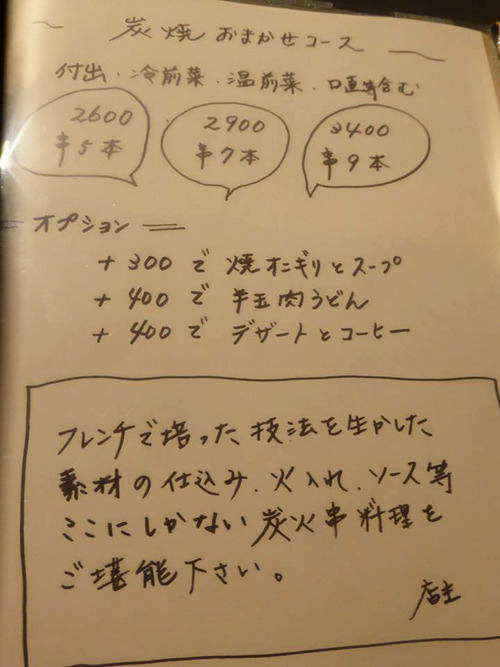 炭焼 おまかせコース
付出・冷前菜・温前菜・口直等含む
2600 2900 3400
串5本 串7本 串9本
オプション
+300で 焼オニギリとスープ
+400で 半玉肉うどん
+400で デザートとコーヒー
フレンチで培った技法を生かした
素材の仕込み、火入れ、ソース等
ここにしかない炭火串料理を
ご堪能下さい。
店主